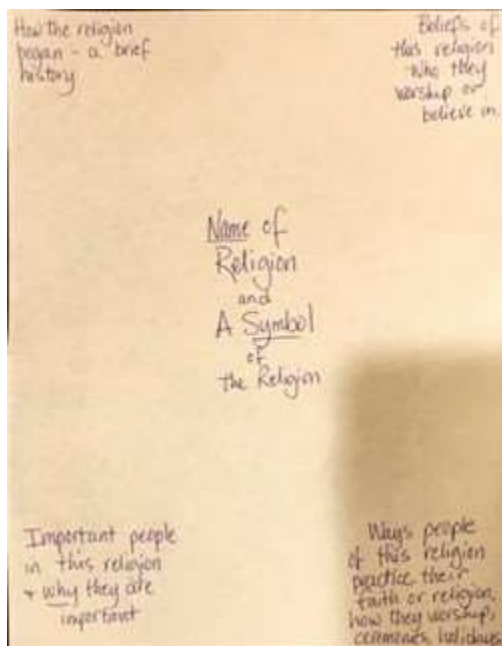 How the religion
began - a brief
history
Beliefs of
this religion
Who they
worship or
believe in.
Name of
Religion
and
A Symbol
of
the Religion
Important people
in this religion
+ why they are
important
Ways people
of this religion
practice their
faith or religion,
how they worship,
ceremonies, holidays